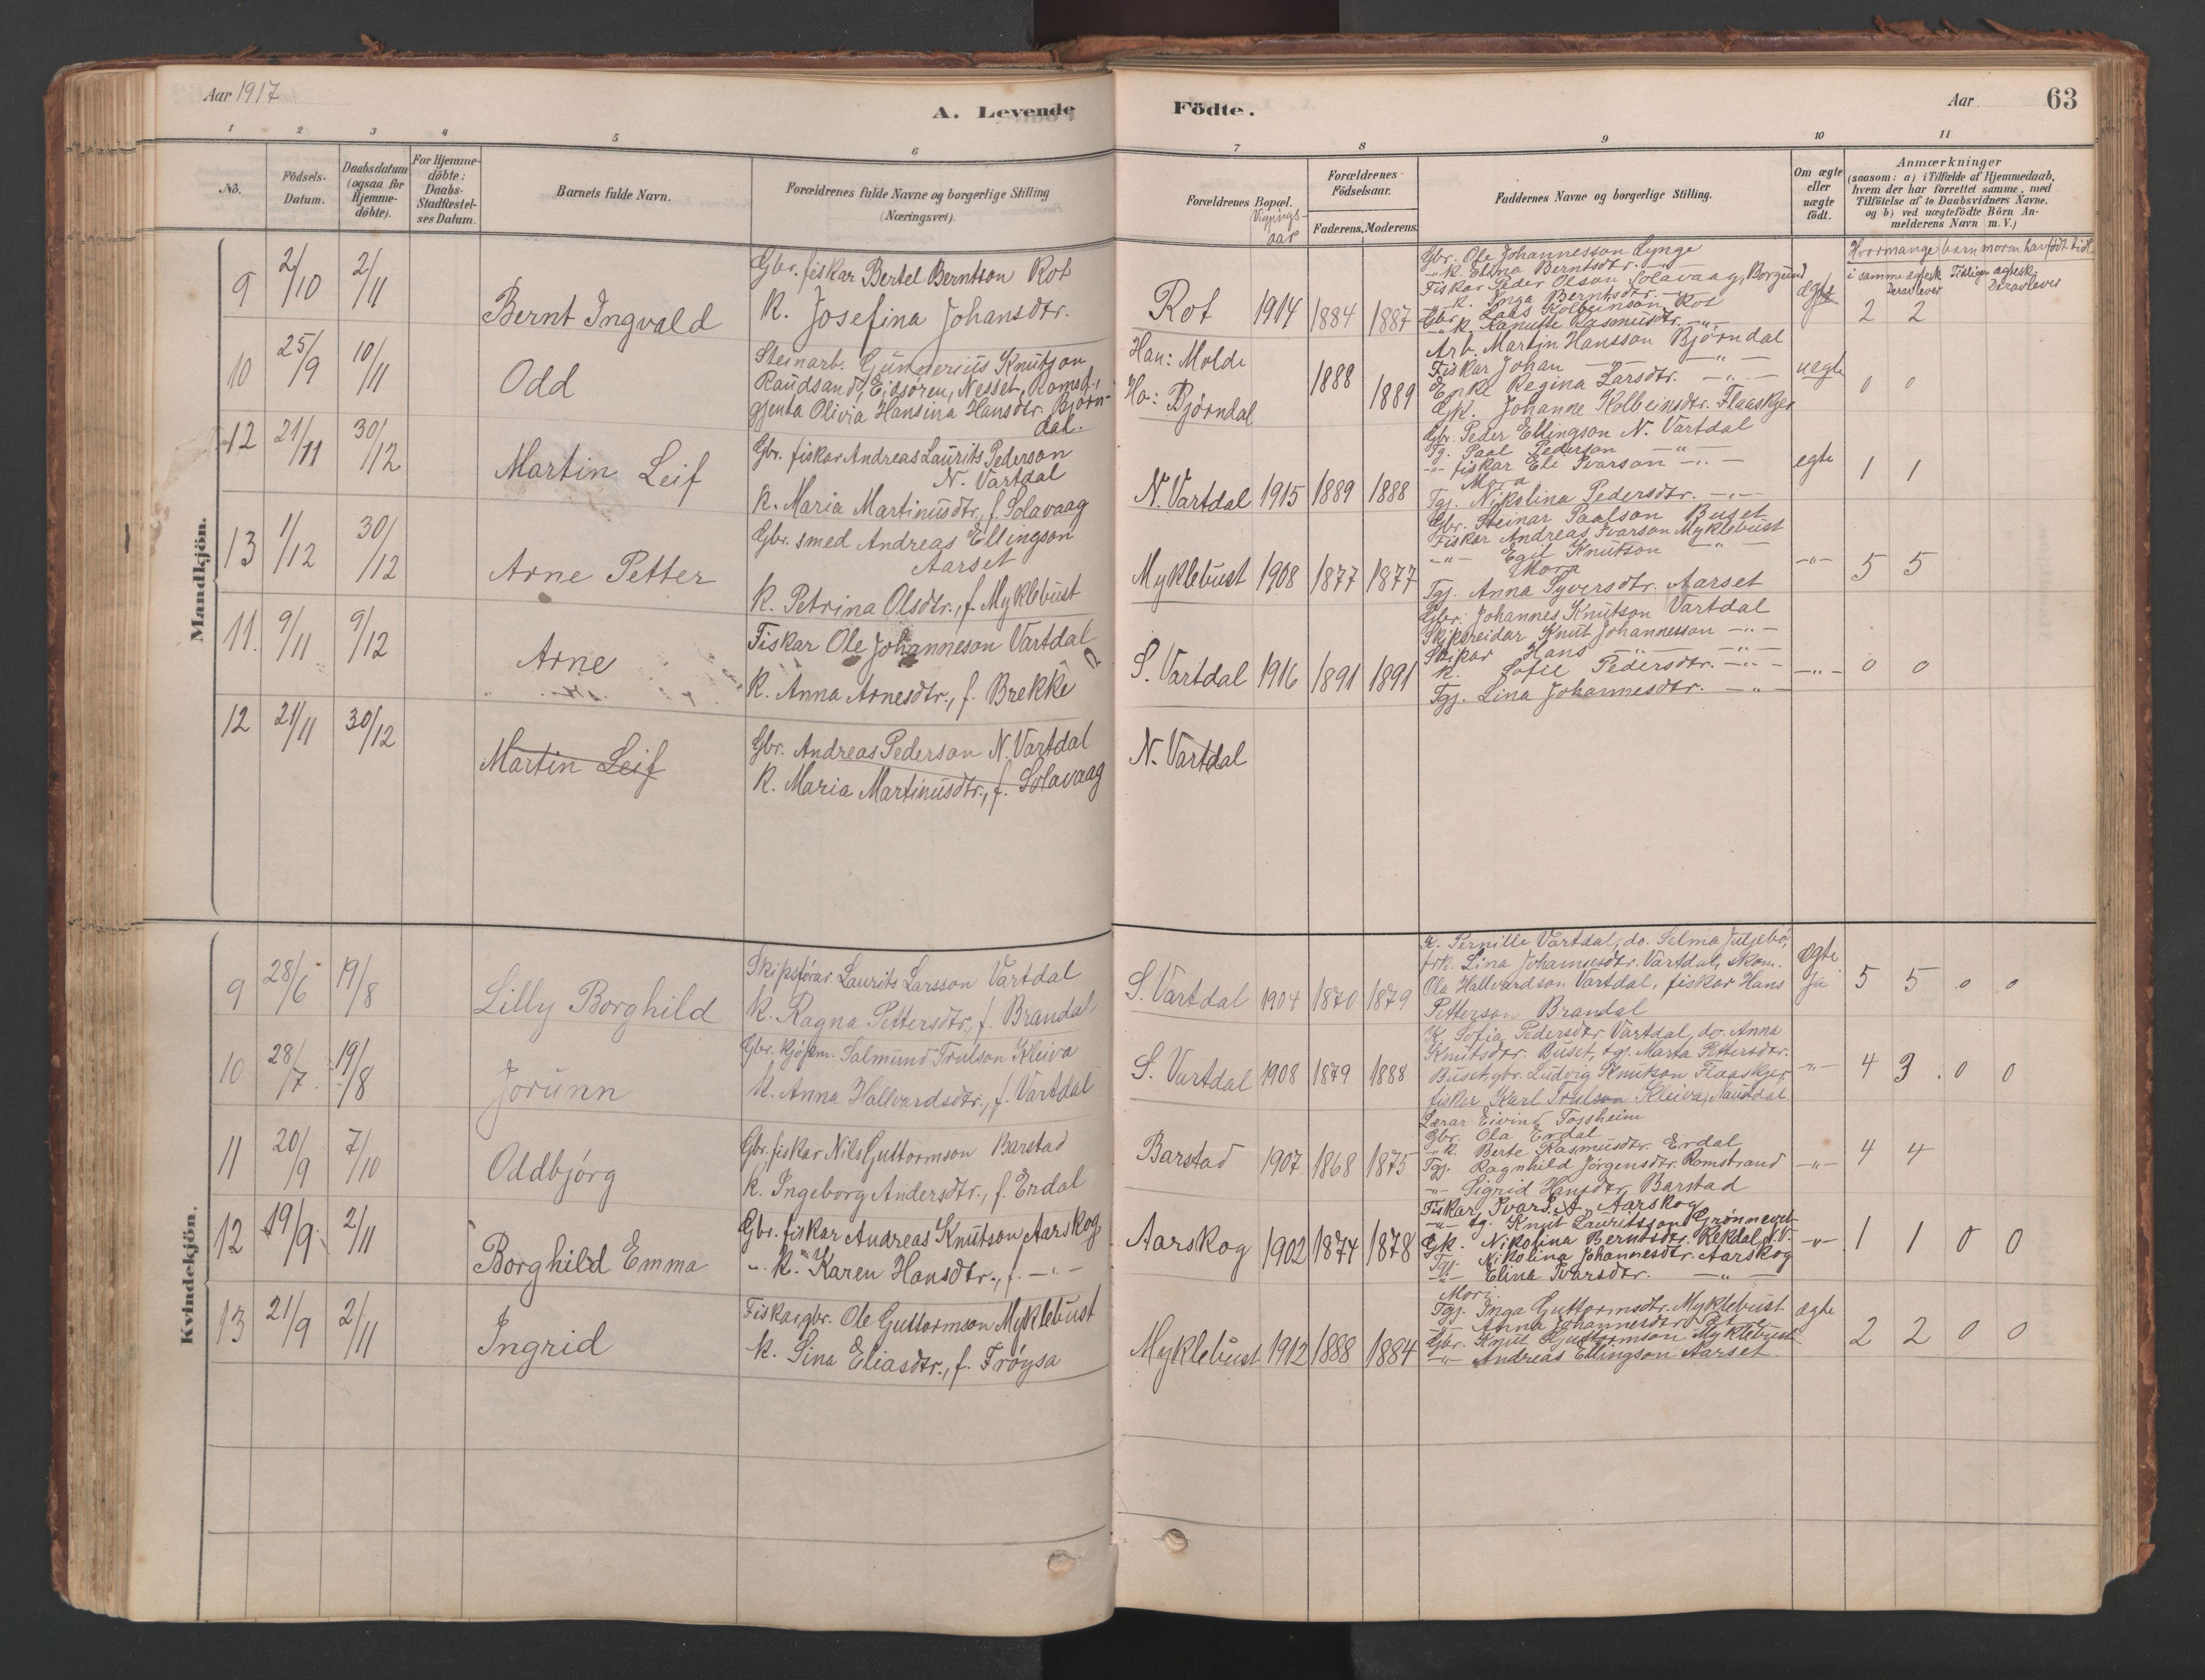 Aar 1917
A. Levende Födte.
Aar 63
1 2 3 4 5 6 7 8 9 10 11
No.
Födsels-Datum.
Daabsdatum (ogsaa for Hjemme-döbte).
For Hjemme-döbte: Daabs-Stadfæstel-ses Datum.
Barnets fulde Navn.
Forældrenes fulde Navne og borgerlige Stilling (Næringsvei).
Forældrenes Bopæl.
Vigjings-aar
Forældrenes Födselsaar.
Faderens. Moderens.
Faddernes Navne og borgerlige Stilling.
Om ægte eller uægte födt.
Anmærkninger
(saasom: a) i Tilfælde af Hjemmedaab,
hvem der har forrettet samme, med
Tilföielse af to Daabsvidners Navne.
og b) ved uægtefödte Börn An-
melderens Navn m. V.)
Hvormange barn moren har født tidl.
i samme egtesk. Tidligere egtesk.
Derav lever Derav lever
Mandkjön.
9 2/10 2/11
Bernt Ingvald
Gbr. fiskar Bertel Berntson Rot
K. Josefina Johansdtr.
Rot 1914 1884 1887
Gbr. Ole Johannesson Lynge
-"- K. Elina Berntsdtr. -"-
Fiskar Peder Olson Solavaag, Borgund
-"- K. Inga Berntsdtr. -"-
Gbr. Lars Kolbeinson Rot
-"- K. Hanutte Rasmusdtr. -"-
egte 2 2
10 25/9 10/11
Odd
Steinarb. Gunderius Knutson
Raudsand, Eidsøren, Nesset, Romsd.,
gjenta Olivia Hansina Hansdtr. Bjørn-
dal.
Han: Molde
Ho: Bjørndal
1888 1889
Arb. Martin Hansson Bjørndal
Fiskar Johan -"- -"-
Enke Regina Larsdtr. -"-
Gk. Johanne Kolbeinsdtr. Flaaskjer
uegte 0 0
12 21/11 30/12
Martin Leif
Gbr. fiskar Andreas Laurits Pederson
N. Vartdal
K. Maria Martinusdtr., f. Solavaag
N. Vartdal 1915 1889 1888
Gbr. Peder Ellingson N. Vartdal
Tg. Paal Pederson -"-
-"- fiskar Ole Ivarson -"-
Mora
Tgj. Nikolina Pedersdtr. -"-
egte 1 1
13 1/12 30/12
Arne Petter
Gbr. smed Andreas Ellingson
Aarset
K. Petrina Olsdtr., f. Myklebust
Myklebust 1908 1877 1877
Gbr. Steinar Paalson Buset
Fiskar Andreas Ivarson Myklebust
-"- Egil Knutson -"-
Mora
Tgj. Anna Syversdtr. Aarset
-"- 5 5
11. 9/11 9/12
Arne
Fiskar Ole Johanneson Vartdal
K. Anna Arnesdtr., f. Brekke
S. Vartdal 1916 1891 1891
Gbr. Johannes Knutson Vartdal
Skipsreidar Knut Johannesson -"-
Skipar Hans -"- -"-
K. Sofie Pedersdtr. -"-
Tgj. Lina Johannesdtr. -"-
-"- 0 0
12 21/11 30/12
Martin Leif
Gbr. Andreas Pederson N. Vartdal
K. Maria Martinusdtr., f. Solavaag
N. Vartdal
Kvindekjön.
9 28/6 19/8
Lilly Borghild
Skipsförar Laurits Larsson Vartdal
K. Ragna Pettersdtr., f. Brandal.
S. Vartdal 1904 1870 1879
K. Pernille Vartdal, do. Selma Juljebø,
frk. Lina Johannesdtr. Vartdal, skom.
Ola Hallvardson Vartdal, fiskar Hans
Petterson Brandal
egte Ja 5 5 0 0
10 28/7 19/8
Jorunn
Gbr. kjøpm. Salmund Trulson Kleiva
K. Anna Hallvardsdtr., f. Vartdal
S. Vartdal 1908 1879 1888
K. Sofia Pedersdtr. Vartdal, do. Anna
Knutsdtr. Buset, tgj. Marta Pettersdtr.
Buset, gbr. Ludvig Knutson Flaaskjer,
fiskar Karl Trulson Kleiva, Naustdal
-"- 4 3 0 0
11 20/9 7/10
Oddbjørg
Gbr. fiskar Nils Guttormson Barstad
K. Ingeborg Andersdtr., f. Erdal
Barstad 1907 1868 1875
Lærar Eivind Fossheim
Gbr. Ola Erdal
-"- K. Berte Rasmusdtr. Erdal
Tgj. Ragnhild Jørgensdtr. Romstrand
-"- Sigrid Hansdtr. Barstad
-"- 4 4
12 19/9 2/11
Borghild Emma
Gbr. fiskar Andreas Knutson Aarskog
-"- K. Karen Hansdtr., f. -"-
Aarskog 1902 1874 1878
Fiskar Ivar S. A. Aarskog
-"- tg. Knut Lauritsson Grønnevet
Gk. Nikolina Berntsdtr. Rekdal N. V.
Tgj. Nikolina Johannesdtr. Aarskog
-"- Elina Ivarsdtr. -"-
-"- 1 1 0 0
13 21/9 2/11
Ingrid
Fiskar, gbr. Ole Guttormson Myklebust
K. Sina Eliasdtr., f. Frøysa
Myklebust 1912 1888 1884
Mori.
Tgj. Inga Guttormsdtr. Myklebust
-"- Anna Johannesdtr.
Gbr. Knut Guttormson Myklebust
-"- Andreas Ellingson Aarset.
egte 2 2 0 0